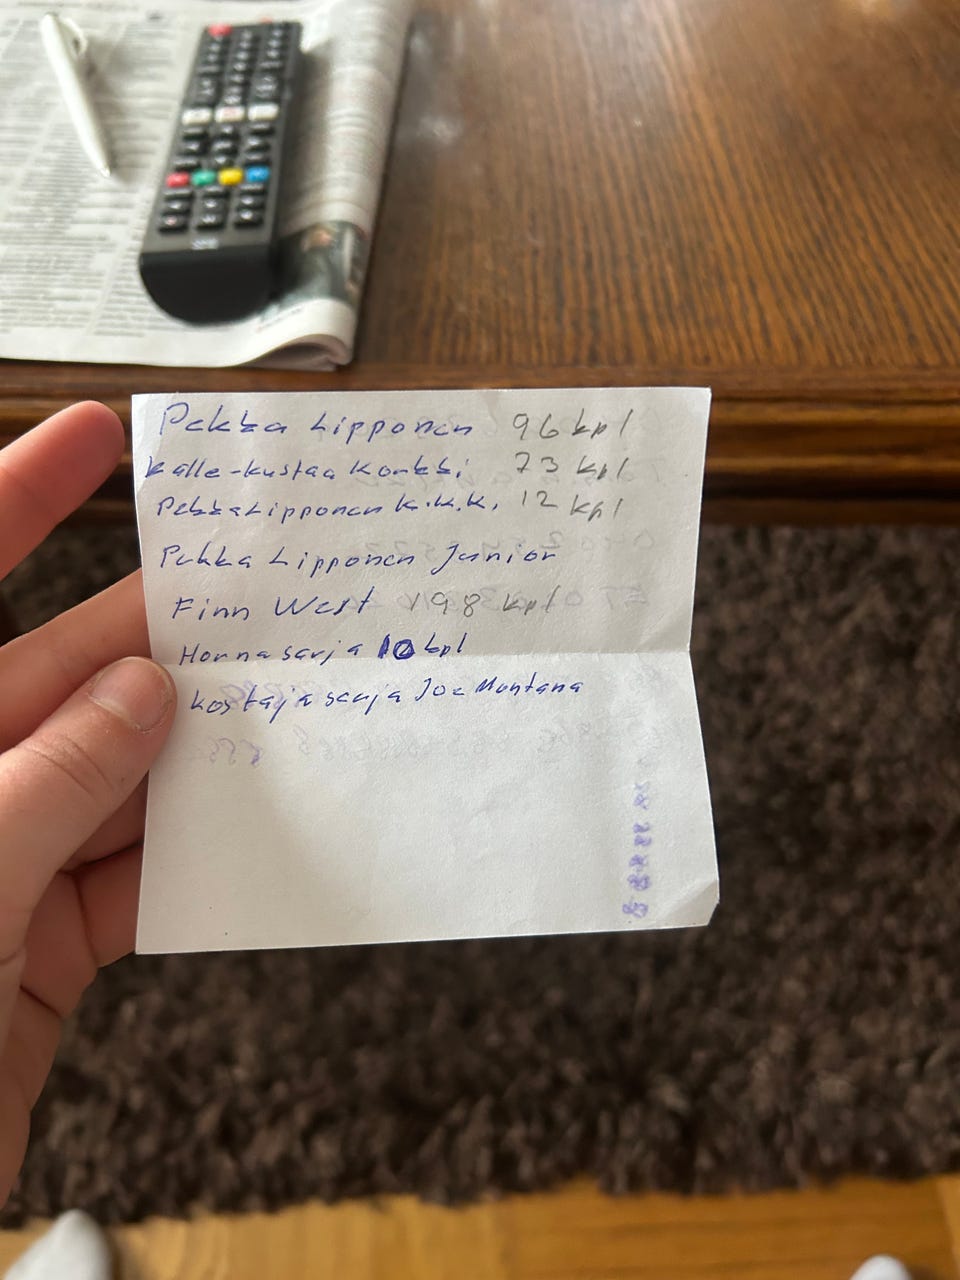 Pekka Lipponen 96 kpl
Kalle-Kustaa Korkki 73 kpl
Pekka Lipponen K.K.K. 12 kpl
Pekka Lipponen Junior
Finn West 198 kpl
Hornasarja 10 kpl
Kostaja sarja Joe Montana